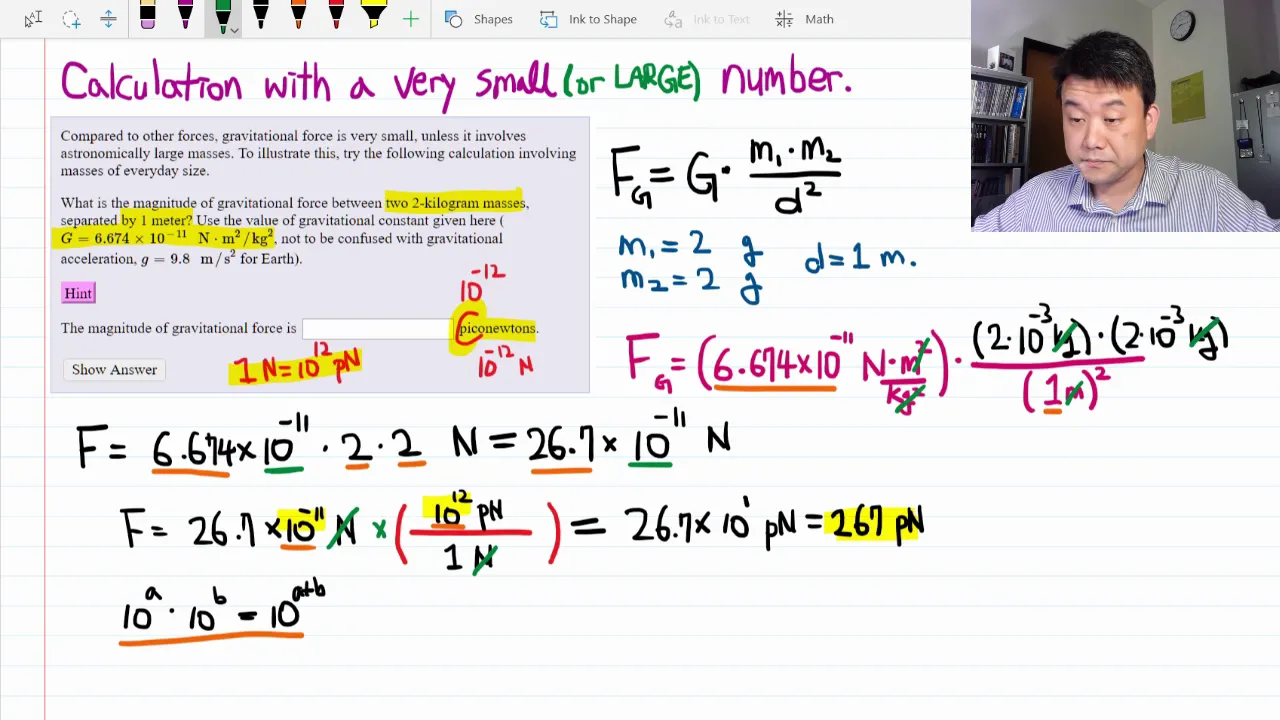 Shapes Ink to Shape Ink to Text Math
Calculation with a very small (or LARGE) number.
Compared to other forces, gravitational force is very small, unless it involves
astronomically large masses. To illustrate this, try the following calculation involving
masses of everyday size.
What is the magnitude of gravitational force between two 2-kilogram masses,
separated by 1 meter? Use the value of gravitational constant given here (
G = 6.674 × 10⁻¹¹ N · m²/kg², not to be confused with gravitational
acceleration, g = 9.8 m/s² for Earth).
Hint
10⁻¹²
The magnitude of gravitational force is piconewtons.
Show Answer
1 N = 10¹² pN
10⁻¹² N
F_G = G · m₁ · m₂ / d²
m₁ = 2 g
m₂ = 2 g
d = 1 m.
F_G = (6.674 × 10⁻¹¹ N · m²/kg²) · (2 · 10⁻³ kg) · (2 · 10⁻³ kg) / (1 m)²
F = 6.674 × 10⁻¹¹ · 2 · 2 N = 26.7 × 10⁻¹¹ N
F = 26.7 × 10⁻¹¹ N × (10¹² pN / 1 N) = 26.7 × 10¹ pN = 267 pN
10ᵃ · 10ᵇ = 10ᵃ⁺ᵇ